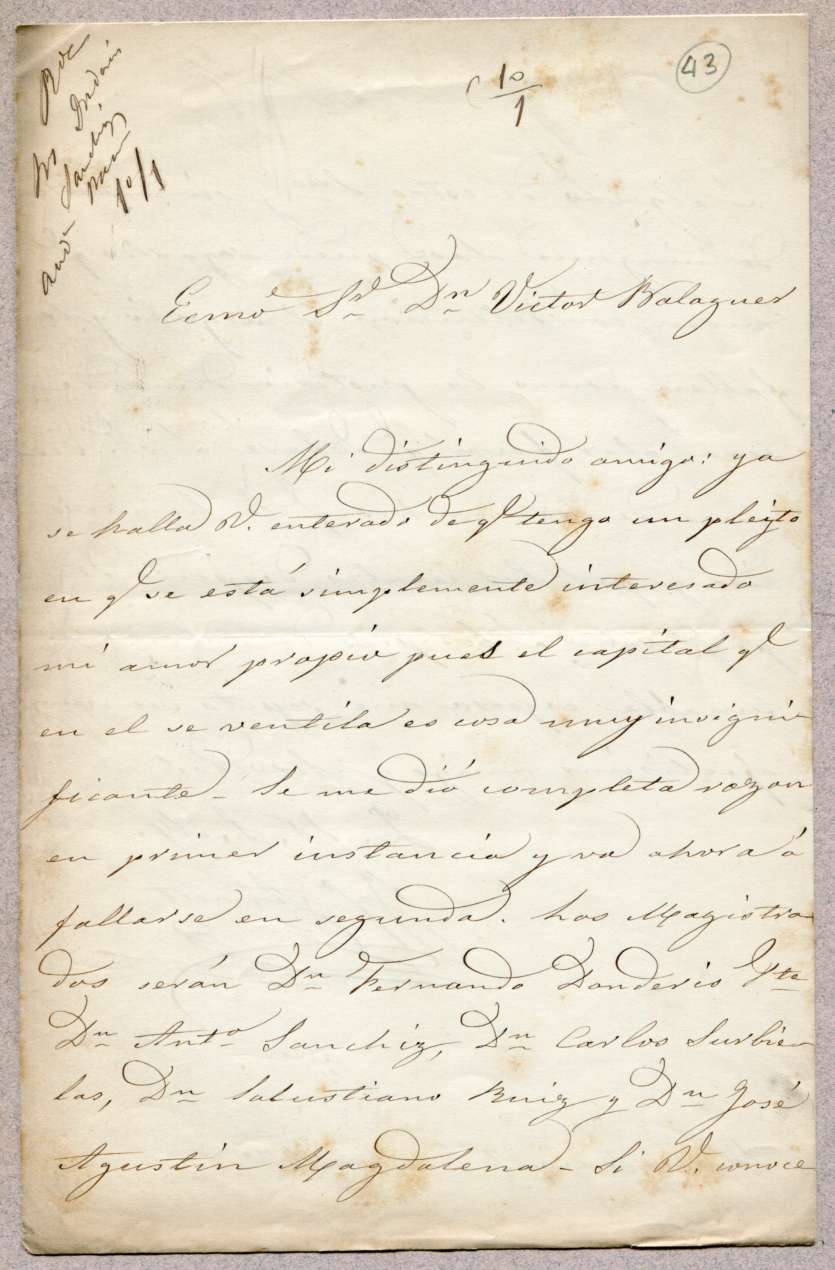 43
10/1
10/1
Ecmo Sr Dn Victor Balaguer
Mi distinguido amigo: ya
se halla V. enterado de qe tengo un pleyto
en qe se está simplemente interesado
mi amor propio pues el capital qe
en el se ventila es cosa muy insigni-
ficante - Se me dió completa razon
en primer instancia y va ahora á
fallarse en segunda. Los Magistra-
dos serán Dn Fernando Donderis Pte
Dn Anto Sanchiz, Dn Carlos Surbie-
las, Dn Salustiano Ruiz y Dn José
Agustin Magdalena - Si V. conoce